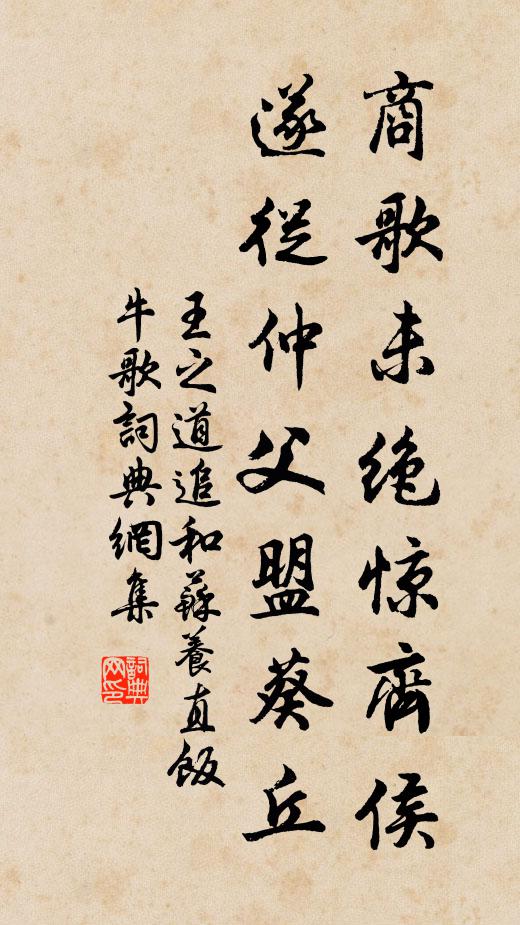 商歌未绝惊齊侯
遂從仲父盟葵丘
王之道追和蘇養直飯
牛歌詞典網集
詞典網印